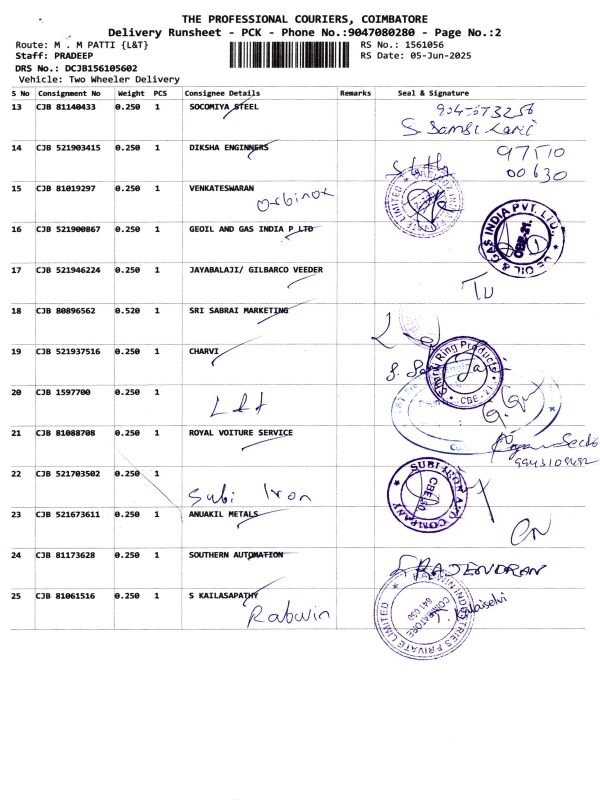 THE PROFESSIONAL COURIERS, COIMBATORE
Delivery Runsheet - PCK - Phone No.:9047080280 - Page No.:2
Route: M . M PATTI {L&T} RS No.: 1561056
Staff: PRADEEP RS Date: 05-Jun-2025
DRS No.: DCJB156105602
Vehicle: Two Wheeler Delivery
S No Consignment No Weight PCS Consignee Details Remarks Seal & Signature
13 CJB 81140433 0.250 1 SOCOMIYA STEEL
14 CJB 521903415 0.250 1 DIKSHA ENGINNERS 97510
00630
15 CJB 81019297 0.250 1 VENKATESWARAN
Orbinox
16 CJB 521900867 0.250 1 GEOIL AND GAS INDIA P LTD
GE OIL & GAS INDIA PVT. LTD.,
CBE-21.
17 CJB 521946224 0.250 1 JAYABALAJI/ GILBARCO VEEDER
18 CJB 80896562 0.520 1 SRI SABRAI MARKETING
19 CJB 521937516 0.250 1 CHARVI
Ring Products
CBE-17
20 CJB 1597700 0.250 1
L&t
21 CJB 81088708 0.250 1 ROYAL VOITURE SERVICE
22 CJB 521703502 0.250 1
Subi Iron
SUBI IRON AND COMPANY
23 CJB 521673611 0.250 1 ANUAKIL METALS
24 CJB 81173628 0.250 1 SOUTHERN AUTOMATION
RAJENDRAN
25 CJB 81061516 0.250 1 S KAILASAPATHY
Rabwin
RABWIN INDUSTRIES PRIVATE LIMITED
COIMBATORE
Kalaiselvi